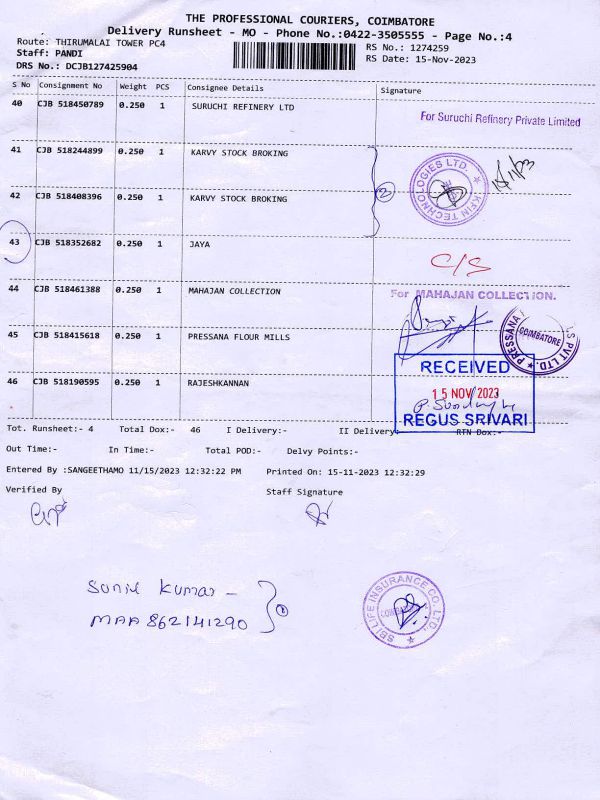 THE PROFESSIONAL COURIERS, COIMBATORE
Delivery Runsheet - MO - Phone No.:0422-3505555 - Page No.:4
Route: THIRUMALAI TOWER PC4 RS No.: 1274259
Staff: PANDI RS Date: 15-Nov-2023
DRS No.: DCJB127425904
S No Consignment No Weight PCS Consignee Details Signature
40 CJB 518450789 0.250 1 SURUCHI REFINERY LTD
For Suruchi Refinery Private Limited
41 CJB 518244899 0.250 1 KARVY STOCK BROKING
KFIN TECHNOLOGIES LTD. ★
42 CJB 518408396 0.250 1 KARVY STOCK BROKING
43 CJB 518352682 0.250 1 JAYA
C/S
44 CJB 518461388 0.250 1 MAHAJAN COLLECTION
For MAHAJAN COLLECTION.
45 CJB 518415618 0.250 1 PRESSANA FLOUR MILLS
COIMBATORE
RECEIVED
46 CJB 518190595 0.250 1 RAJESHKANNAN
15 NOV 2023
REGUS SRIVARI
Tot. Runsheet:- 4 Total Dox:- 46 I Delivery:- II Delivery: RTN Dox:-
Out Time:- In Time:- Total POD:- Delvy Points:-
Entered By :SANGEETHAMO 11/15/2023 12:32:22 PM Printed On: 15-11-2023 12:32:29
Verified By Staff Signature
Sunil Kumar -
MAA 862141290
SBI LIFE INSURANCE CO. LTD. ★